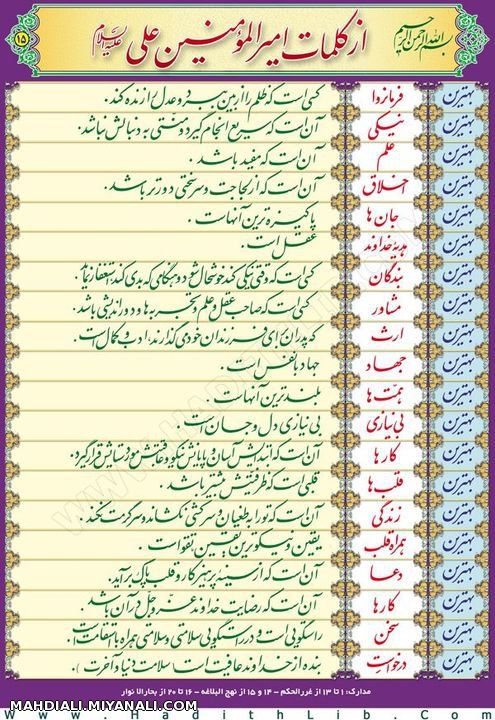 بسم الله الرحمن الرحیم
از کلمات امیرالمؤمنین علی علیه السلام
۱۵
بهترین فرمانروا کسی است که ظلم را از بین ببرد و عدل را زنده کند.
بهترین نیکی آن است که سریع انجام گیرد و منتی به دنبالش نباشد.
بهترین علم آن است که مفید باشد.
بهترین اخلاق آن است که از لجاجت و سرسختی دورتر باشد.
بهترین جان ها پاکیزه ترین آنهاست.
بهترین هدیه خداوند عقل است.
بهترین بندگان کسی است که وقتی نیکی کند خوشحال شود و هنگامی که بدی کند استغفار نماید.
بهترین مشاور کسی است که صاحب عقل و علم و تجربه ها و دوراندیشی باشد.
بهترین ارث که پدران برای فرزندان خود می گذارند، ادب و کمال است.
بهترین جهاد جهاد با نفس است.
بهترین همت ها بلندترین آنهاست.
بهترین بی نیازی بی نیازی دل و جان است.
بهترین کارها آن است که ابتدایش آسان و پایانش نیکو و عاقبتش مورد ستایش قرار گیرد.
بهترین قلب ها قلبی است که ظرفیتش بیشتر باشد.
بهترین زندگی آن است که تو را به طغیان و سرکشی نکشاند و سرگرمت نکند.
بهترین همراه قلب یقین و نیکوترین یقین تقوا است.
بهترین دعا آن است که از سینه پرهیزکار و قلب پاک برآید.
بهترین کارها آن است که رضایت خداوند عزوجل در آن باشد.
بهترین سخن راستگویی است و در راستگویی سلامتی و سلامتی همراه با استقامت است.
بهترین درخواست بنده از خداوند عافیت است (سلامت دنیا و آخرت).
مدارک: ۱ تا ۱۳ از غررالحکم - ۱۴ و ۱۵ از نهج البلاغه - ۱۶ تا ۲۰ از بحارالانوار
MAHDIALI.MIYANALI.COM
www.HadithLib.com